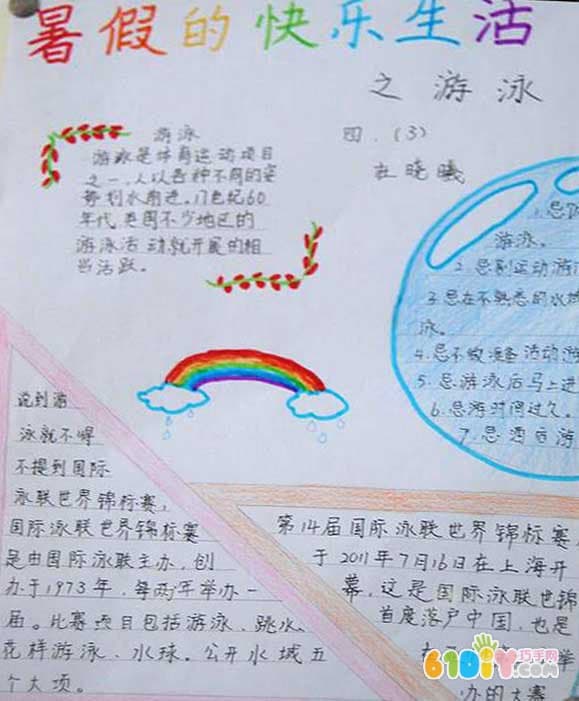 暑假的快乐生活
之游泳
四.(3)
杜晓曦
游泳
游泳是体育运动项目
之一,人以各种不同的姿
势划水前进。17世纪60
年代,英国不少地区的
游泳活动就开展的相
当活跃。
1.忌饭
游泳。
2.忌剧运动游
3.忌在不熟悉的水域
泳。
4.忌不做准备活动游
5.忌游泳后马上进
6.忌游时间过久。
7.忌酒后游
说到游
泳就不得
不提到国际
泳联世界锦标赛,
国际泳联世界锦标赛
是由国际泳联主办,创
办于1973年,每两年举办一
届。比赛项目包括游泳、跳水、
花样游泳、水球。公开水域五
个大项。
第14届国际泳联世界锦标赛
于2011年7月16日在上海开
幕,这是国际泳联世锦
首度落户中国,也是
举
办的大赛
610iY巧手网